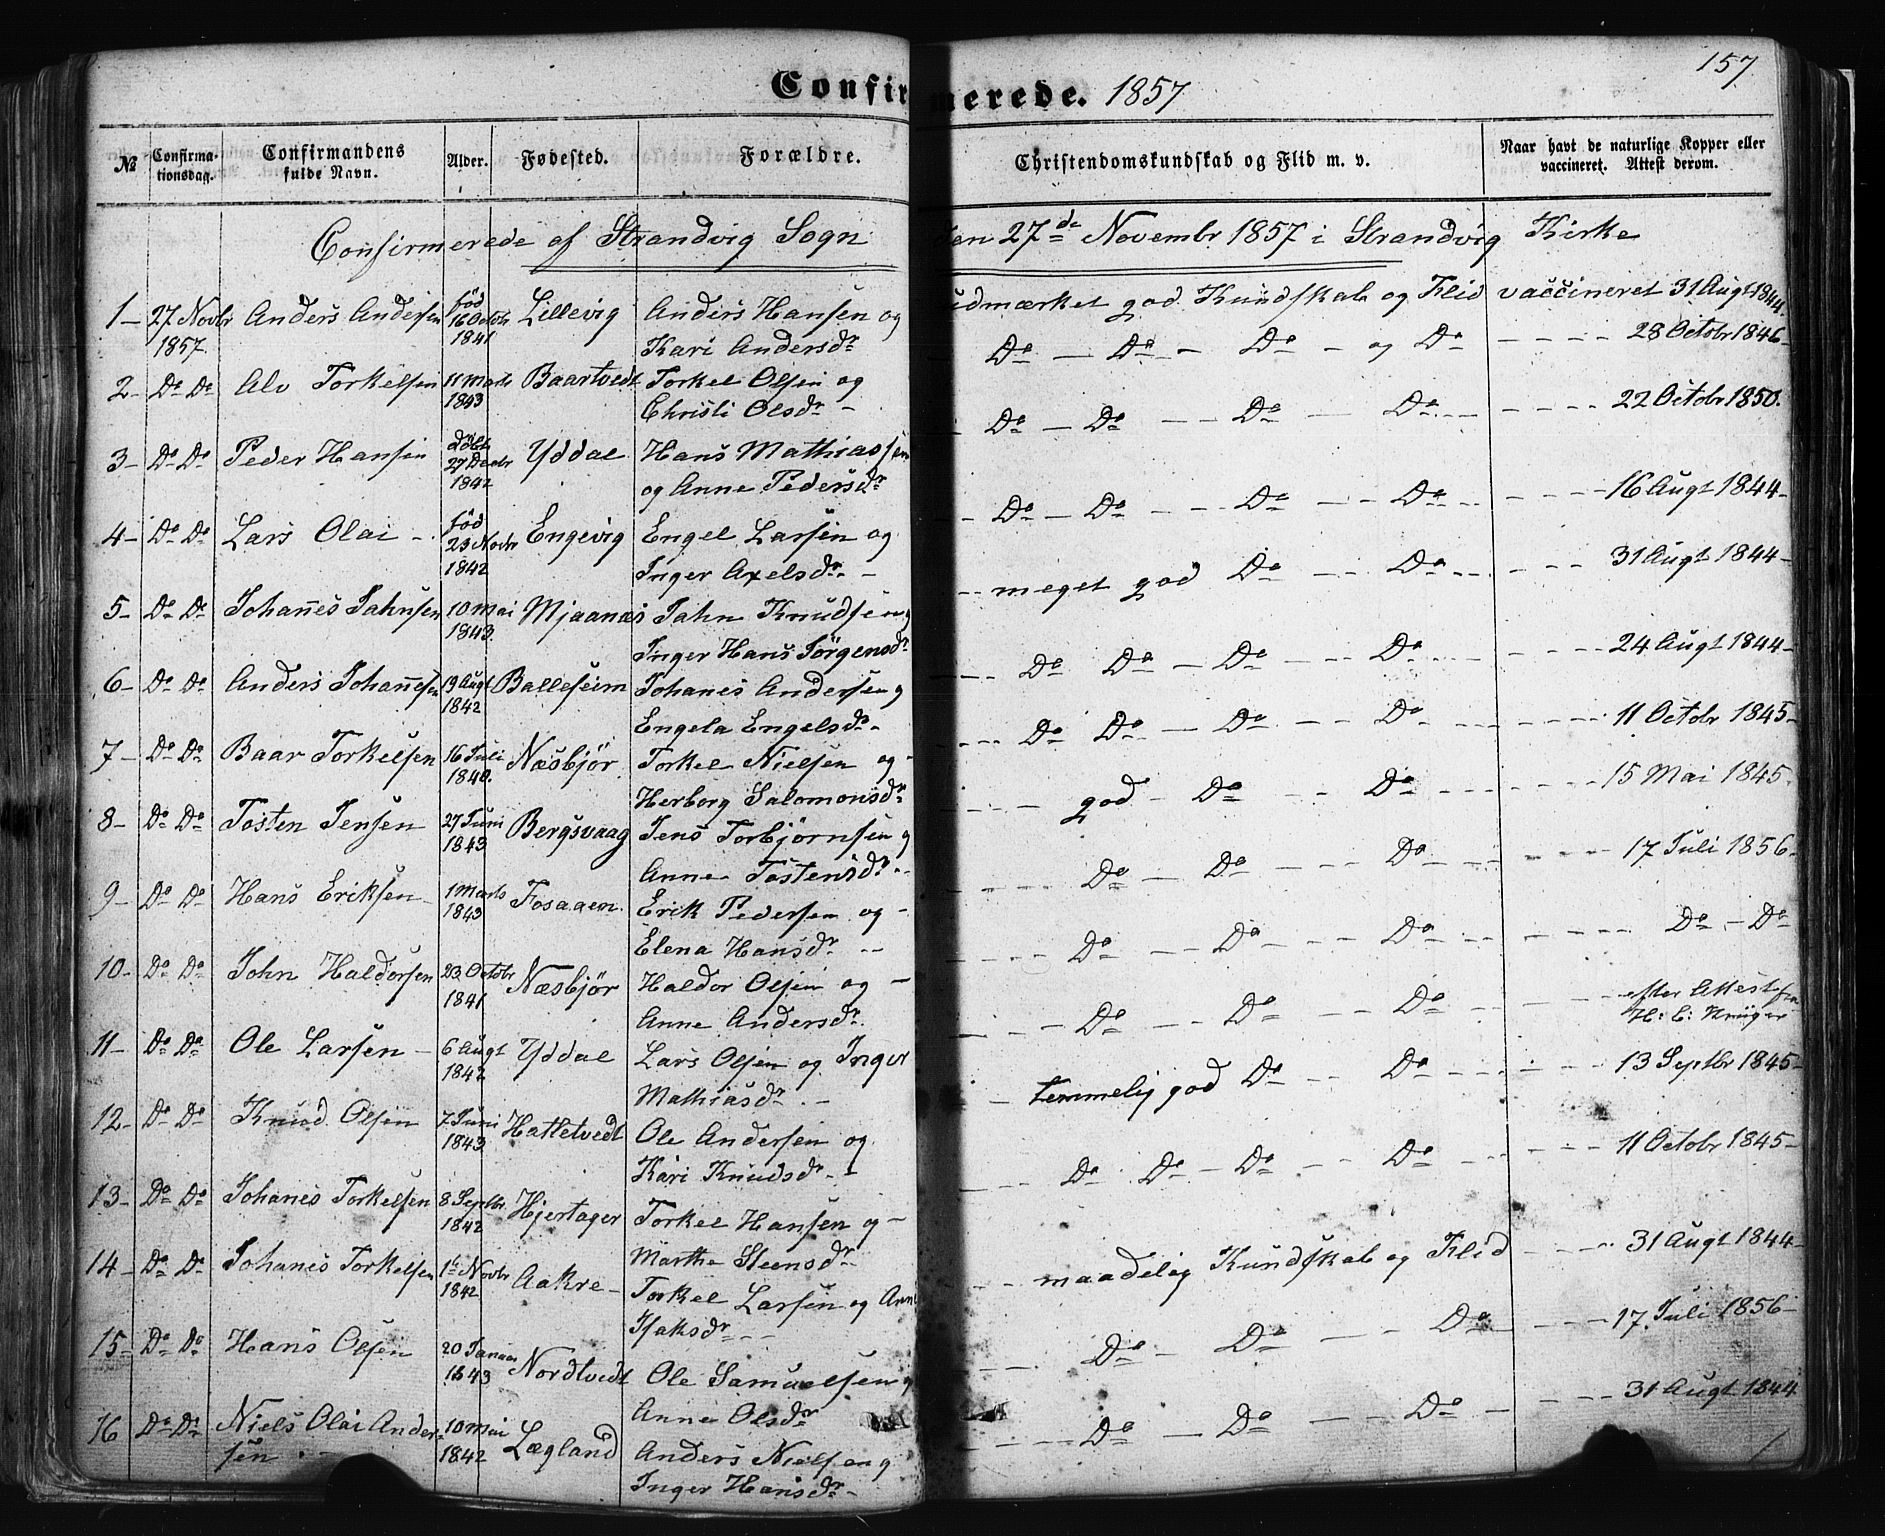 157.
Confirmerede. 1857
№ Confirmationsdag. Confirmandens fulde Navn. Alder. Fødested. Forældre. Christendomskundskab og Flid m. v. Naar havt de naturlige Kopper eller vaccineret. Attest derom.
Confirmerede af Strandvig Sogn den 27de Novembr 1857 i Strandvig Kirke
1 – 27 Novbr 1857. Anders Andersen fød 16 Octobr 1841 Lillevig Anders Hansen og Kari Andersdr udmærket god Kundskab og Flid vaccineret 31 Augt 1844.
2 – Do Do Alv Torkelsen 11 Marts 1843 Baartvedt Torkel Olsen og Christi Olsdr – Do – Do – Do – og Do – – – – 28 Octobr 1846 –
3 – Do Do Peder Hansen døbt 27 Decbr 1842 Yddal Hans Mathiassen og Anne Pedersdr – Do – Do – – Do – Do – – – – 22 Octobr 1850.
4 – Do Do Lars Olai – fød 23 Novbr 1842 Engevig Engel Larsen og Inger Axelsdr – – Do – Do – – Do – – Do – – – – 16 Augt 1844 –
5 – Do Do Johannes Jahnsen 10 Mai 1843. Mjaanæs Jahn Knudsen og Inger Hans Jørgensdr – – meget god Do – – Do – – – – 31 Augt 1844 –
6 – Do Do Anders Johannesen 19 Augt 1842 Balleseim Johanes Andersen og Engela Engelsdr – – – Do Do – Do – – Do – – – – 24 Augt 1844 –
7 – Do Do Baar Torkelsen 16 Juli 1840. Næsbjør Torkel Nielsen og – Herborg Salomonsdr – – Do Do – Do – – Do – – – – 11 Octobr 1845 –
8 – Do Do Tosten Jensen 27 Juni 1843 Bergsvaag Jens Torbjørnsen og Anne Tostensdr – – – god – Do – – Do – – – – 15 Mai 1845.
9 – Do Do Hans Eriksen – 1 Marts 1843 Fosaaen Erik Pedersen og – Elena Hansdr – – – – Do – Do – – Do – – – – 17 Juli 1856 –
10 – Do Do John Haldorsen 23 Octobr 1841 Næsbjør Haldor Olsen og – Anne Andersdr. – – Do – – Do – – Do – – – – Do – Do
11 – Do Do Ole Larsen – 6 Augt 1842 Yddal Lars Olsen og Inger Mathiasdr. – – – Do – – Do – – Do – – – efter Attest fra H: C: Krüger
12 – Do Do Knud Olsen 7 Juni 1843 Hatletvedt Ole Andersen og Kari Knudsdr – – temmelig god Do – – Do – – – – 13 Septbr 1845 –
13 – Do Do Johanes Torkelsen 8 Septbr 1842 Hjertager Torkel Hansen og – Marthe Steensdr – – – Do Do – Do – – Do – – – – 11 Octobr 1845 –
14 – Do Do Johanes Torkelsen 14 Novbr 1842 Aakre – Torkel Larsen og Anne Isaksdr – – – – maadelig Kundskab og Flid – – – 31 Augt 1844 –
15 – Do Do Hans Olsen 20 Januar 1843 Nordtvedt Ole Samuelsen og Anne Olsdr – – Do – – Do – – Do – – – 17 Juli 1856 –
16 Do Do Niels Olai Andersen. – 10 Mai 1842 Lægland Anders Nielsen og Inger Hansdr – – – Do – Do – – Do – – – 31 Augt 1844